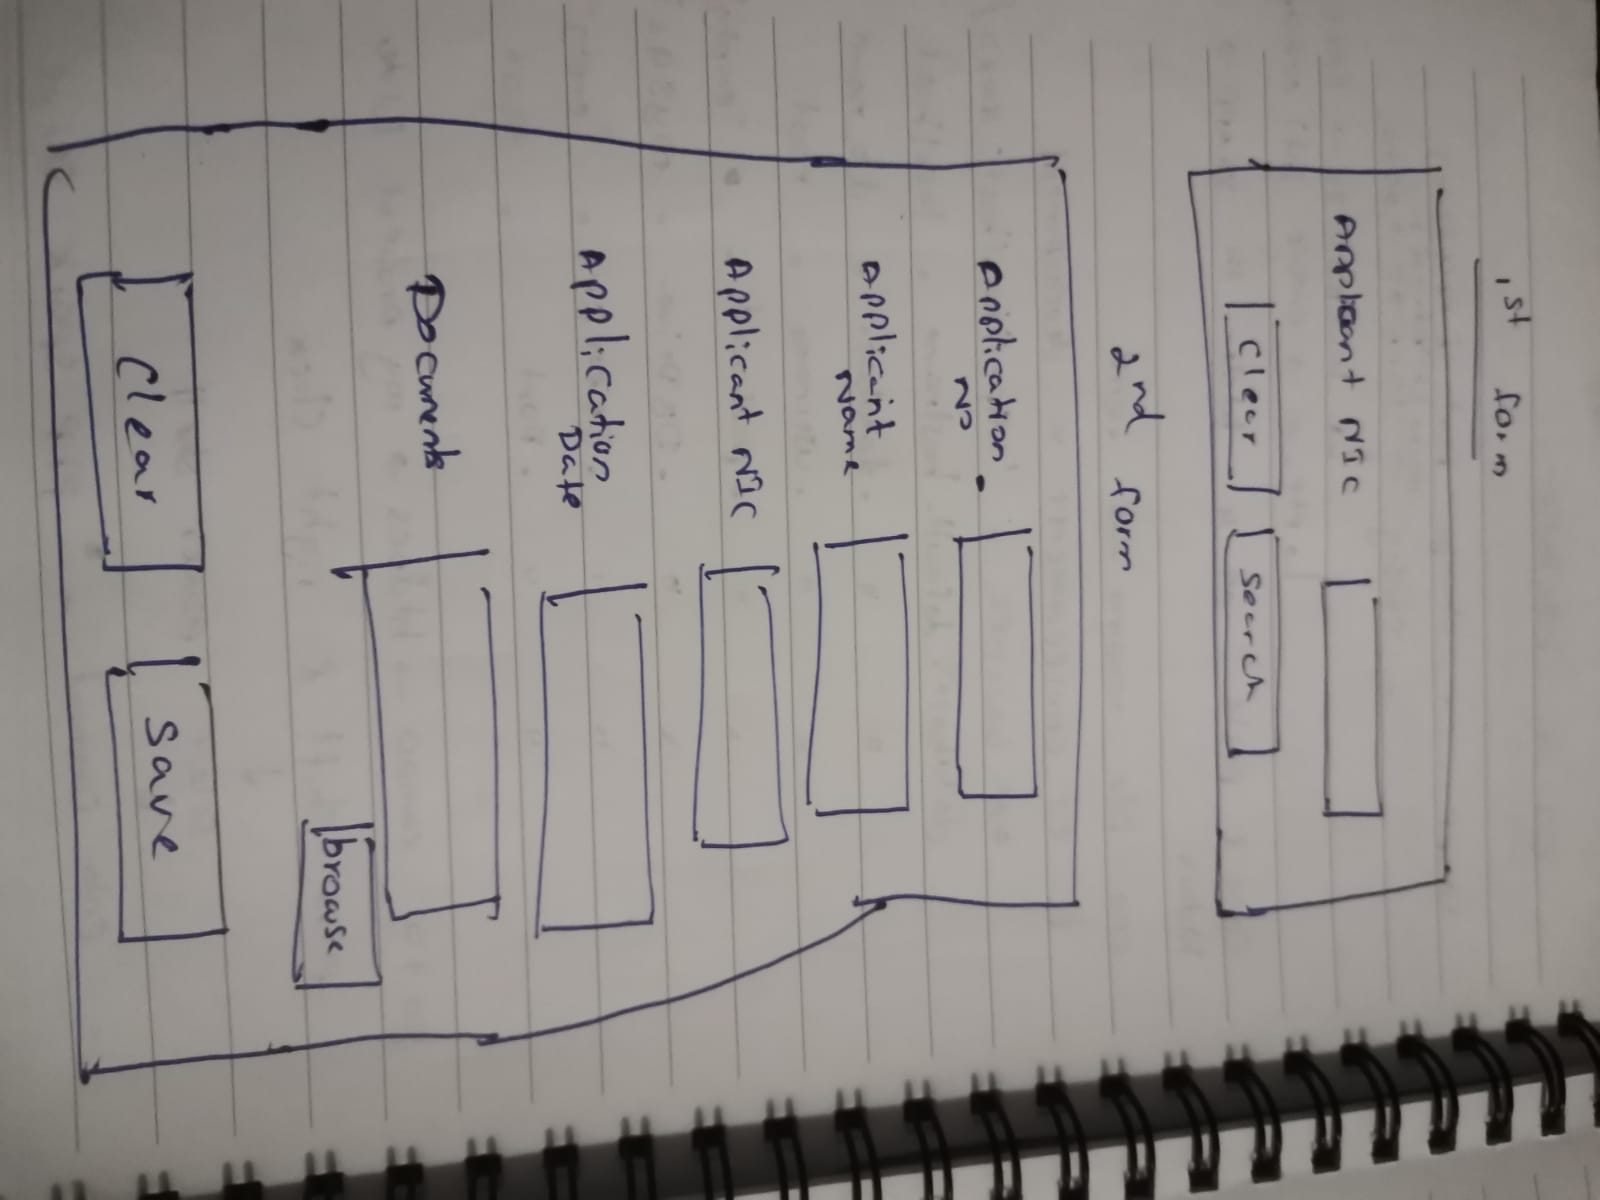 1st form
Applicant NIC
Clear Search
2nd form
Application
No -
Applicant
Name
Applicant NIC
Application
Date
Documents
browse
Clear Save